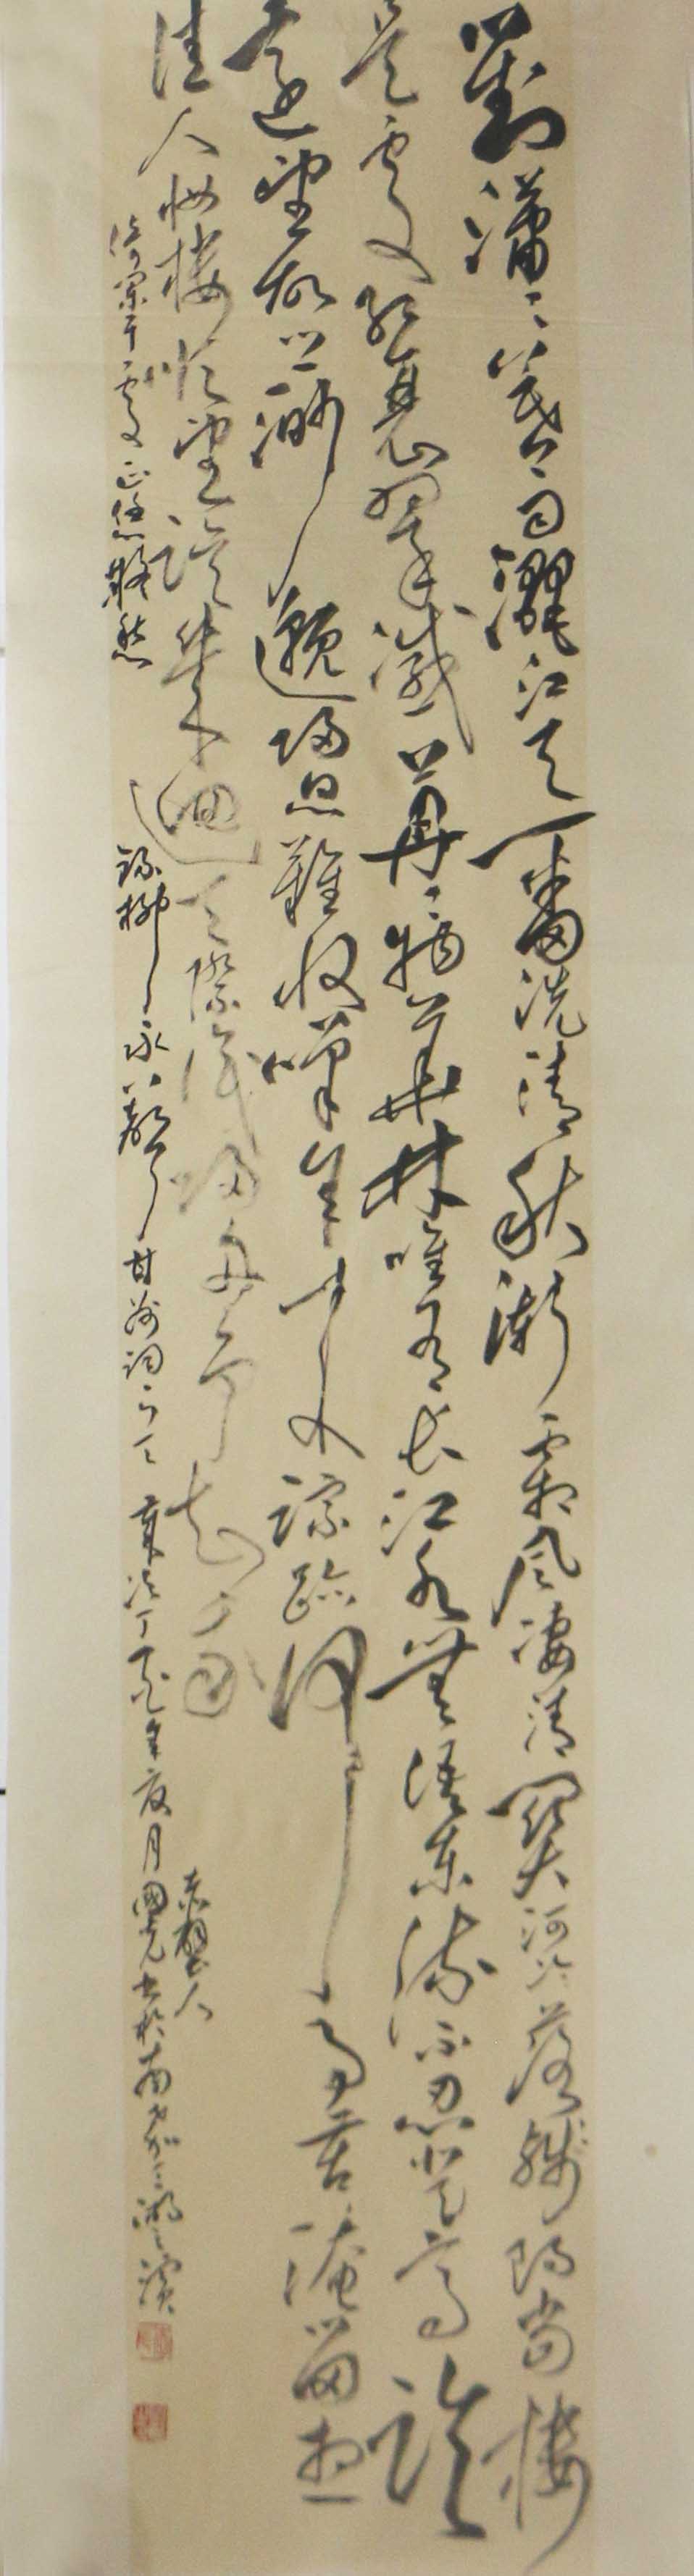 對瀟瀟暮雨灑江天一番洗清秋漸霜風凄清關河冷落殘照當樓
是處紅衰翠減苒苒物華休唯有長江水無語東流不忍登高臨
遠望故鄉渺邈歸思難收嘆年來蹤跡何事苦淹留想
佳人妝樓顒望誤幾回天際識歸舟爭知我
倚闌干處正恁凝愁
錄柳永八聲甘州詞一首 歲次丁 年 月國 書於南 湖濱
赤壁人